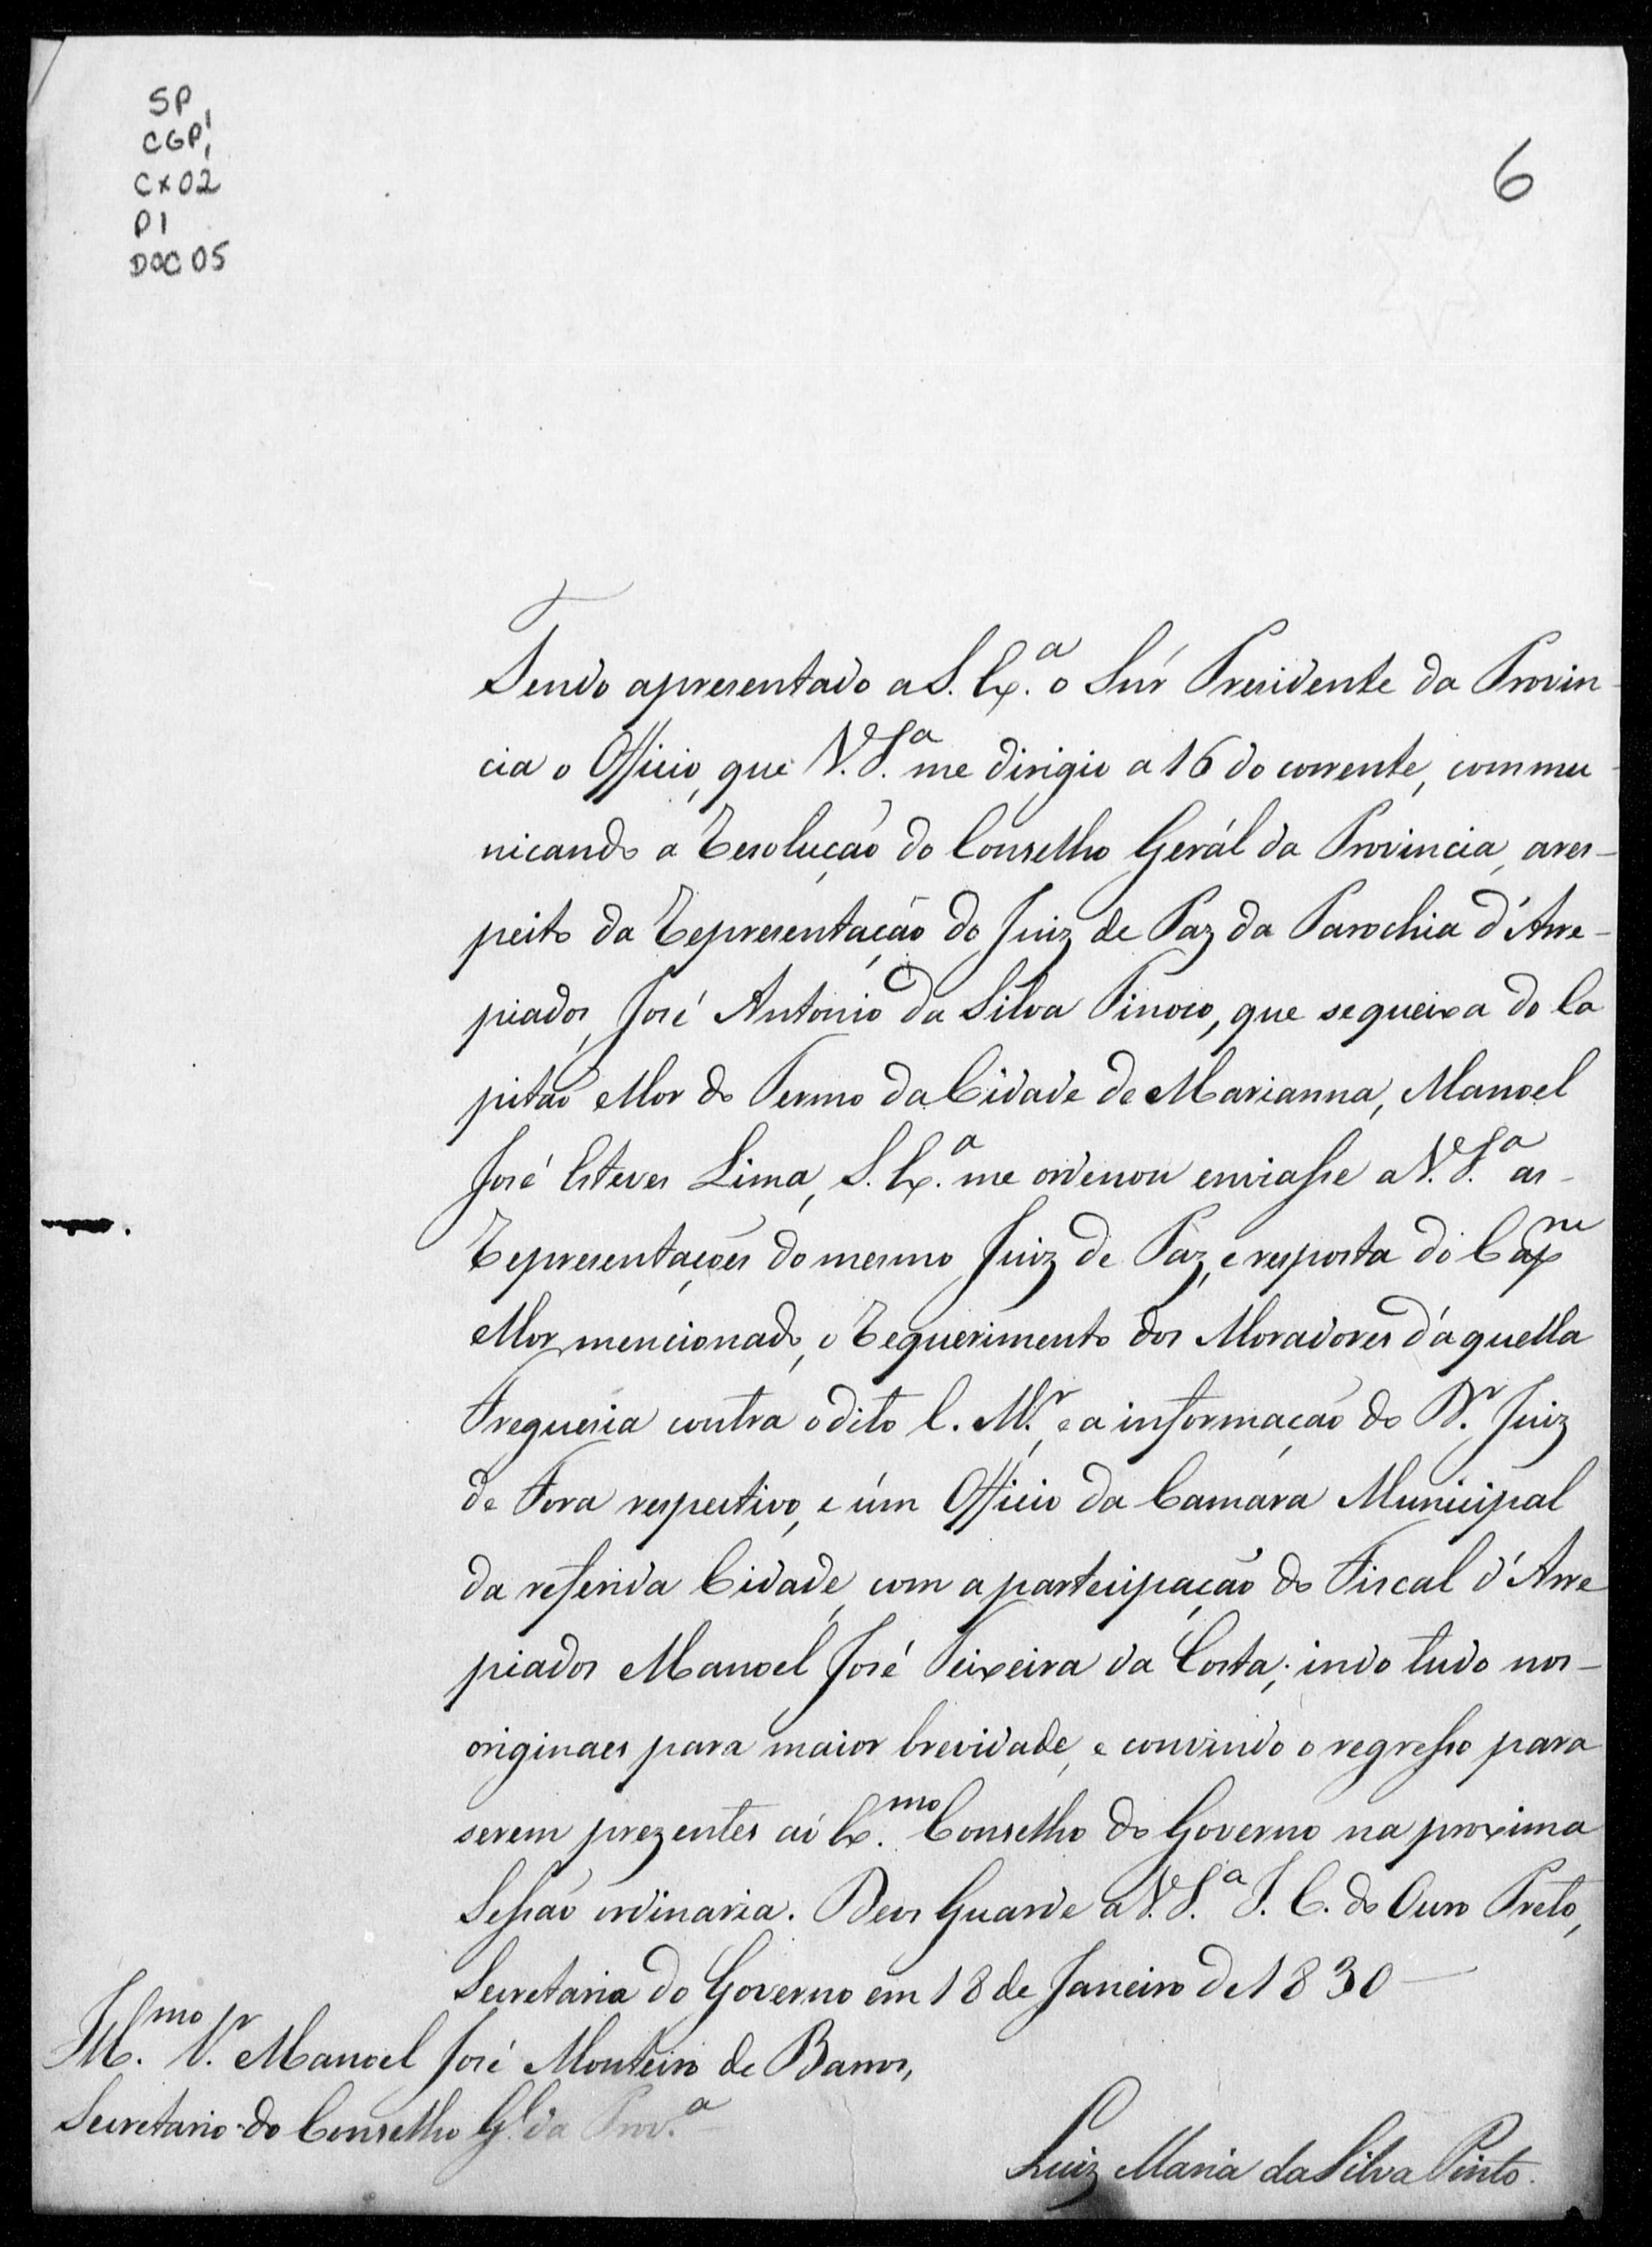 SP
CGP1
CX02
P1
DOC 05
6
Sendo apresentado a S. Ex.ª o Snr Presidente da Provin-
cia o Officio, que V. S.ª me dirigio a 16 do corrente, commu-
nicando a Resolução do Conselho Gerál da Provincia, a res-
peito da Representação do Juiz de Paz da Parochia d'Arre-
piados, José Antonio da Silva Pinoco, que se queixa do Ca
pitaõ Mor do Termo da Cidade de Marianna, Manoel
José Esteves Lima, S. Ex.ª me ordenou enviasse a V. S.ª as-
Representações do mesmo Juiz de Paz, e resposta do Cap.m
Mor mencionado, o Requerimento dos Moradores d'aquella
Freguesia contra o dito C. M.r, e a informaçaõ do D.r Juiz
de Fora respectivo, e úm Officio da Camara Municipal
da referida Cidade, com a partecipaçaõ do Fiscal d'Arre
piados Manoel José Teixeira da Costa; indo tudo nos-
originaes para maior brevidade, e convindo o regresso para
serem prezentes aó Ex.mo Conselho do Governo na proxima
Sessaõ ordinaria. Deos Guarde a V. S.ª I. C. do Ouro Preto,
Secretaria do Governo em 18 de Janeiro de 1830 —
Ill.mo Sr. Manoel José Monteiro de Barros,
Secretario do Conselho G.l da Prov.ª
Luiz Maria da Silva Pinto.